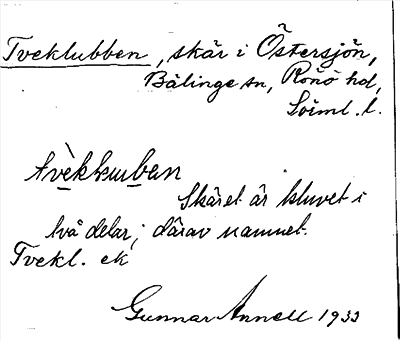 Tveklubben, skär i Östersjön,
Bälinge sn, Rönö hd,
Söiml. l.
tvèkkɯban
Skäret är kluvet i
två delar; därav namnet.
Tvekl. ek
Gunnar Annell 1933